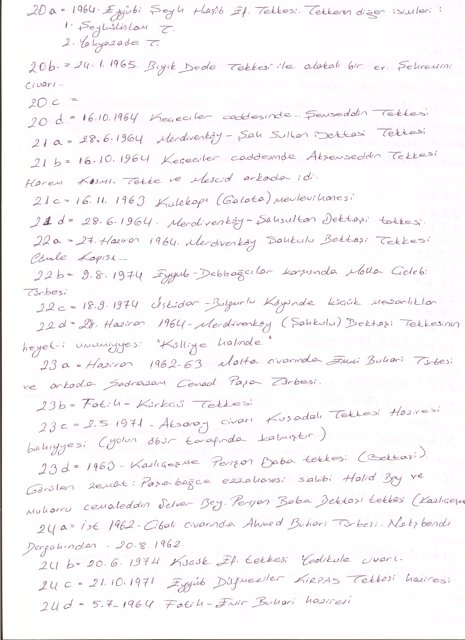 20a = 1964. Eyyübi Şeyh Hasib Ef. Tekkesi. Tekkenin diğer isimleri:
1. Şeyhülislam T.
2. Yahyazade T.
20b = 24.1.1965 Bıyık Dede Tekkesi ile alakalı bir er. Şehremini
civarı..
20c =
20d = 16.10.1964 Keçeciler caddesinde.. Şemseddin Tekkesi
21a = 28.6.1964 Merdivenköy - Şah Sultan Bektaşi Tekkesi
21b = 16.10.1964 Keçeciler caddesinde Akşemseddin Tekkesi
Harem Kısmı. Tekke ve Mescid arkada idi.
21c = 16.11.1963 Kulekapı (Galata) Mevlevihanesi
21d = 28.6.1964. Merdivenköy - Şahsultan Bektaşi tekkesi.
22a = 27. Haziran 1964. Merdivenköy Şahkulu Bektaşi Tekkesi
Kapısı...
22b = 9.8.1974 Eyyub - Debbağcılar karşısında Molla Çelebi
Türbesi
22c = 18.9.1974 Üsküdar - Bulgurlu Köyünde küçük mezarlıklar
22d = 28. Haziran 1964 - Merdivenköy (Şahkulu) Bektaşi Tekkesinin
heyet-i umumiyyesi "Külliye halinde"
23a = Haziran 1962-63 Malta civarında Emir Buhari Türbesi
ve arkada Sadrazam Cevad Paşa Türbesi.
23b = Fatih - Kürkçü Tekkesi
23c = 2.5.1971 - Aksaray civarı Kuşadalı Tekkesi Haziresi
bakıyyesi (yolun öbür tarafında kalmıştır)
23d = 1963 - Kazlıçeşme Perişan Baba tekkesi (Bektaşi)
Görülen zevat: Paşabağçe eczahanesi sahibi Halid Bey ve
Cemaleddin Server Bey. Perişan Baba Bektaşi tekkesi (Kazlıçeşme
24a = ist. 1962 - Cibali civarında Ahmed Buhari Türbesi. Nakşbendi
Dergahından - 20.8.1962
24b = 20.6.1974 Küçük Ef. tekkesi Yedikule civarı.
24c = 21.10.1971 Eyyüb Düğmeciler KIRPAS Tekkesi haziresi
24d = 5.7.1964 Fatih - Emir Buhari haziresi